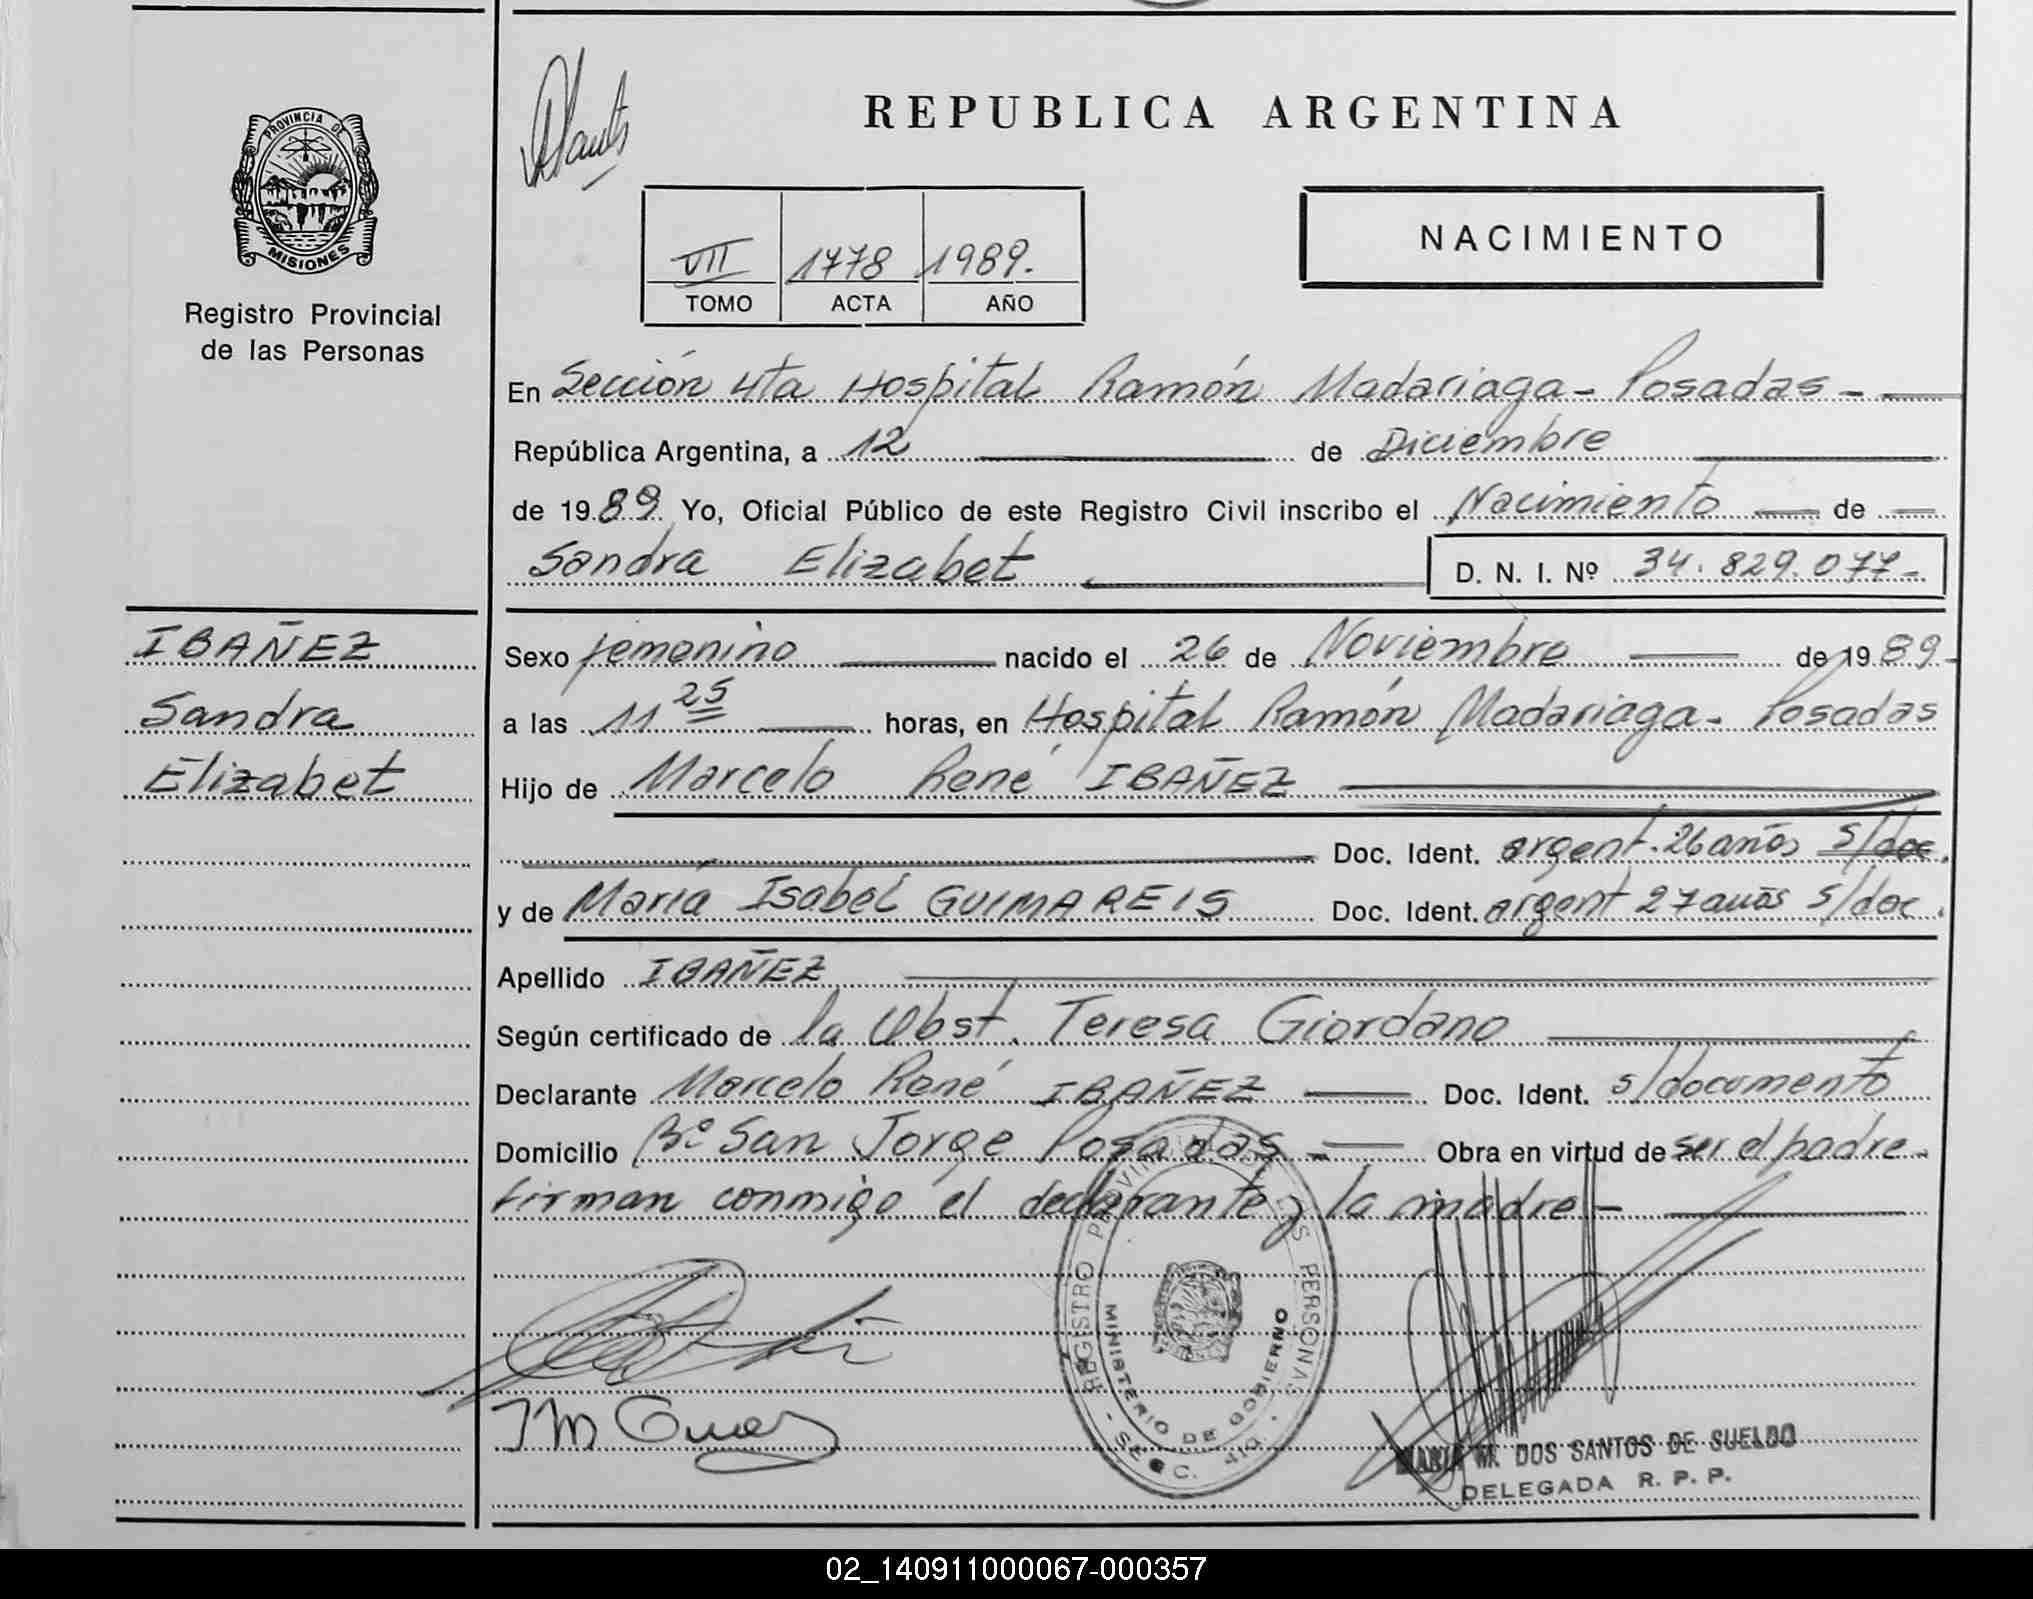 REPUBLICA ARGENTINA
PROVINCIA DE
MISIONES
Registro Provincial
de las Personas
VII 1778 1989.
TOMO ACTA AÑO
NACIMIENTO
En Sección 4ta Hospital Ramón Madariaga - Posadas -
República Argentina, a 12 de Diciembre
de 1989 Yo, Oficial Público de este Registro Civil inscribo el Nacimiento de
Sandra Elizabet D. N. I. Nº 34.829.077-
IBAÑEZ
Sandra
Elizabet
Sexo femenino nacido el 26 de Noviembre de 1989-
a las 11 25 horas, en Hospital Ramón Madariaga - Posadas
Hijo de Marcelo René IBAÑEZ
Doc. Ident. argent. 26 años s/doc.
y de María Isabel GUIMAREIS Doc. Ident. argent 27 años s/doc.
Apellido IBAÑEZ
Según certificado de la Obst. Teresa Giordano
Declarante Marcelo René IBAÑEZ Doc. Ident. s/documento
Domicilio Bº San Jorge Posadas - Obra en virtud de ser el padre-
firman conmigo el declarante y la madre -
REGISTRO PROVINCIAL DE LAS PERSONAS
MINISTERIO DE GOBIERNO
MARIA M. DOS SANTOS DE SUELDO
DELEGADA R. P. P.
02_140911000067-000357